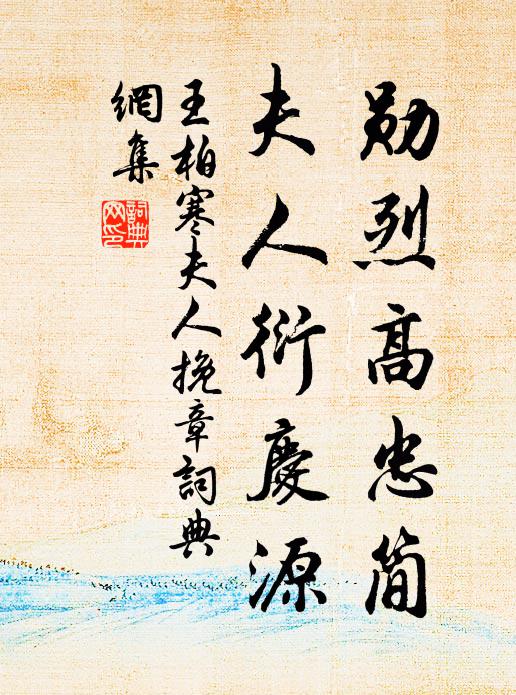 勋烈高忠简
夫人衍慶源
王柏寒夫人挽章詞典
網集
詞典
网印